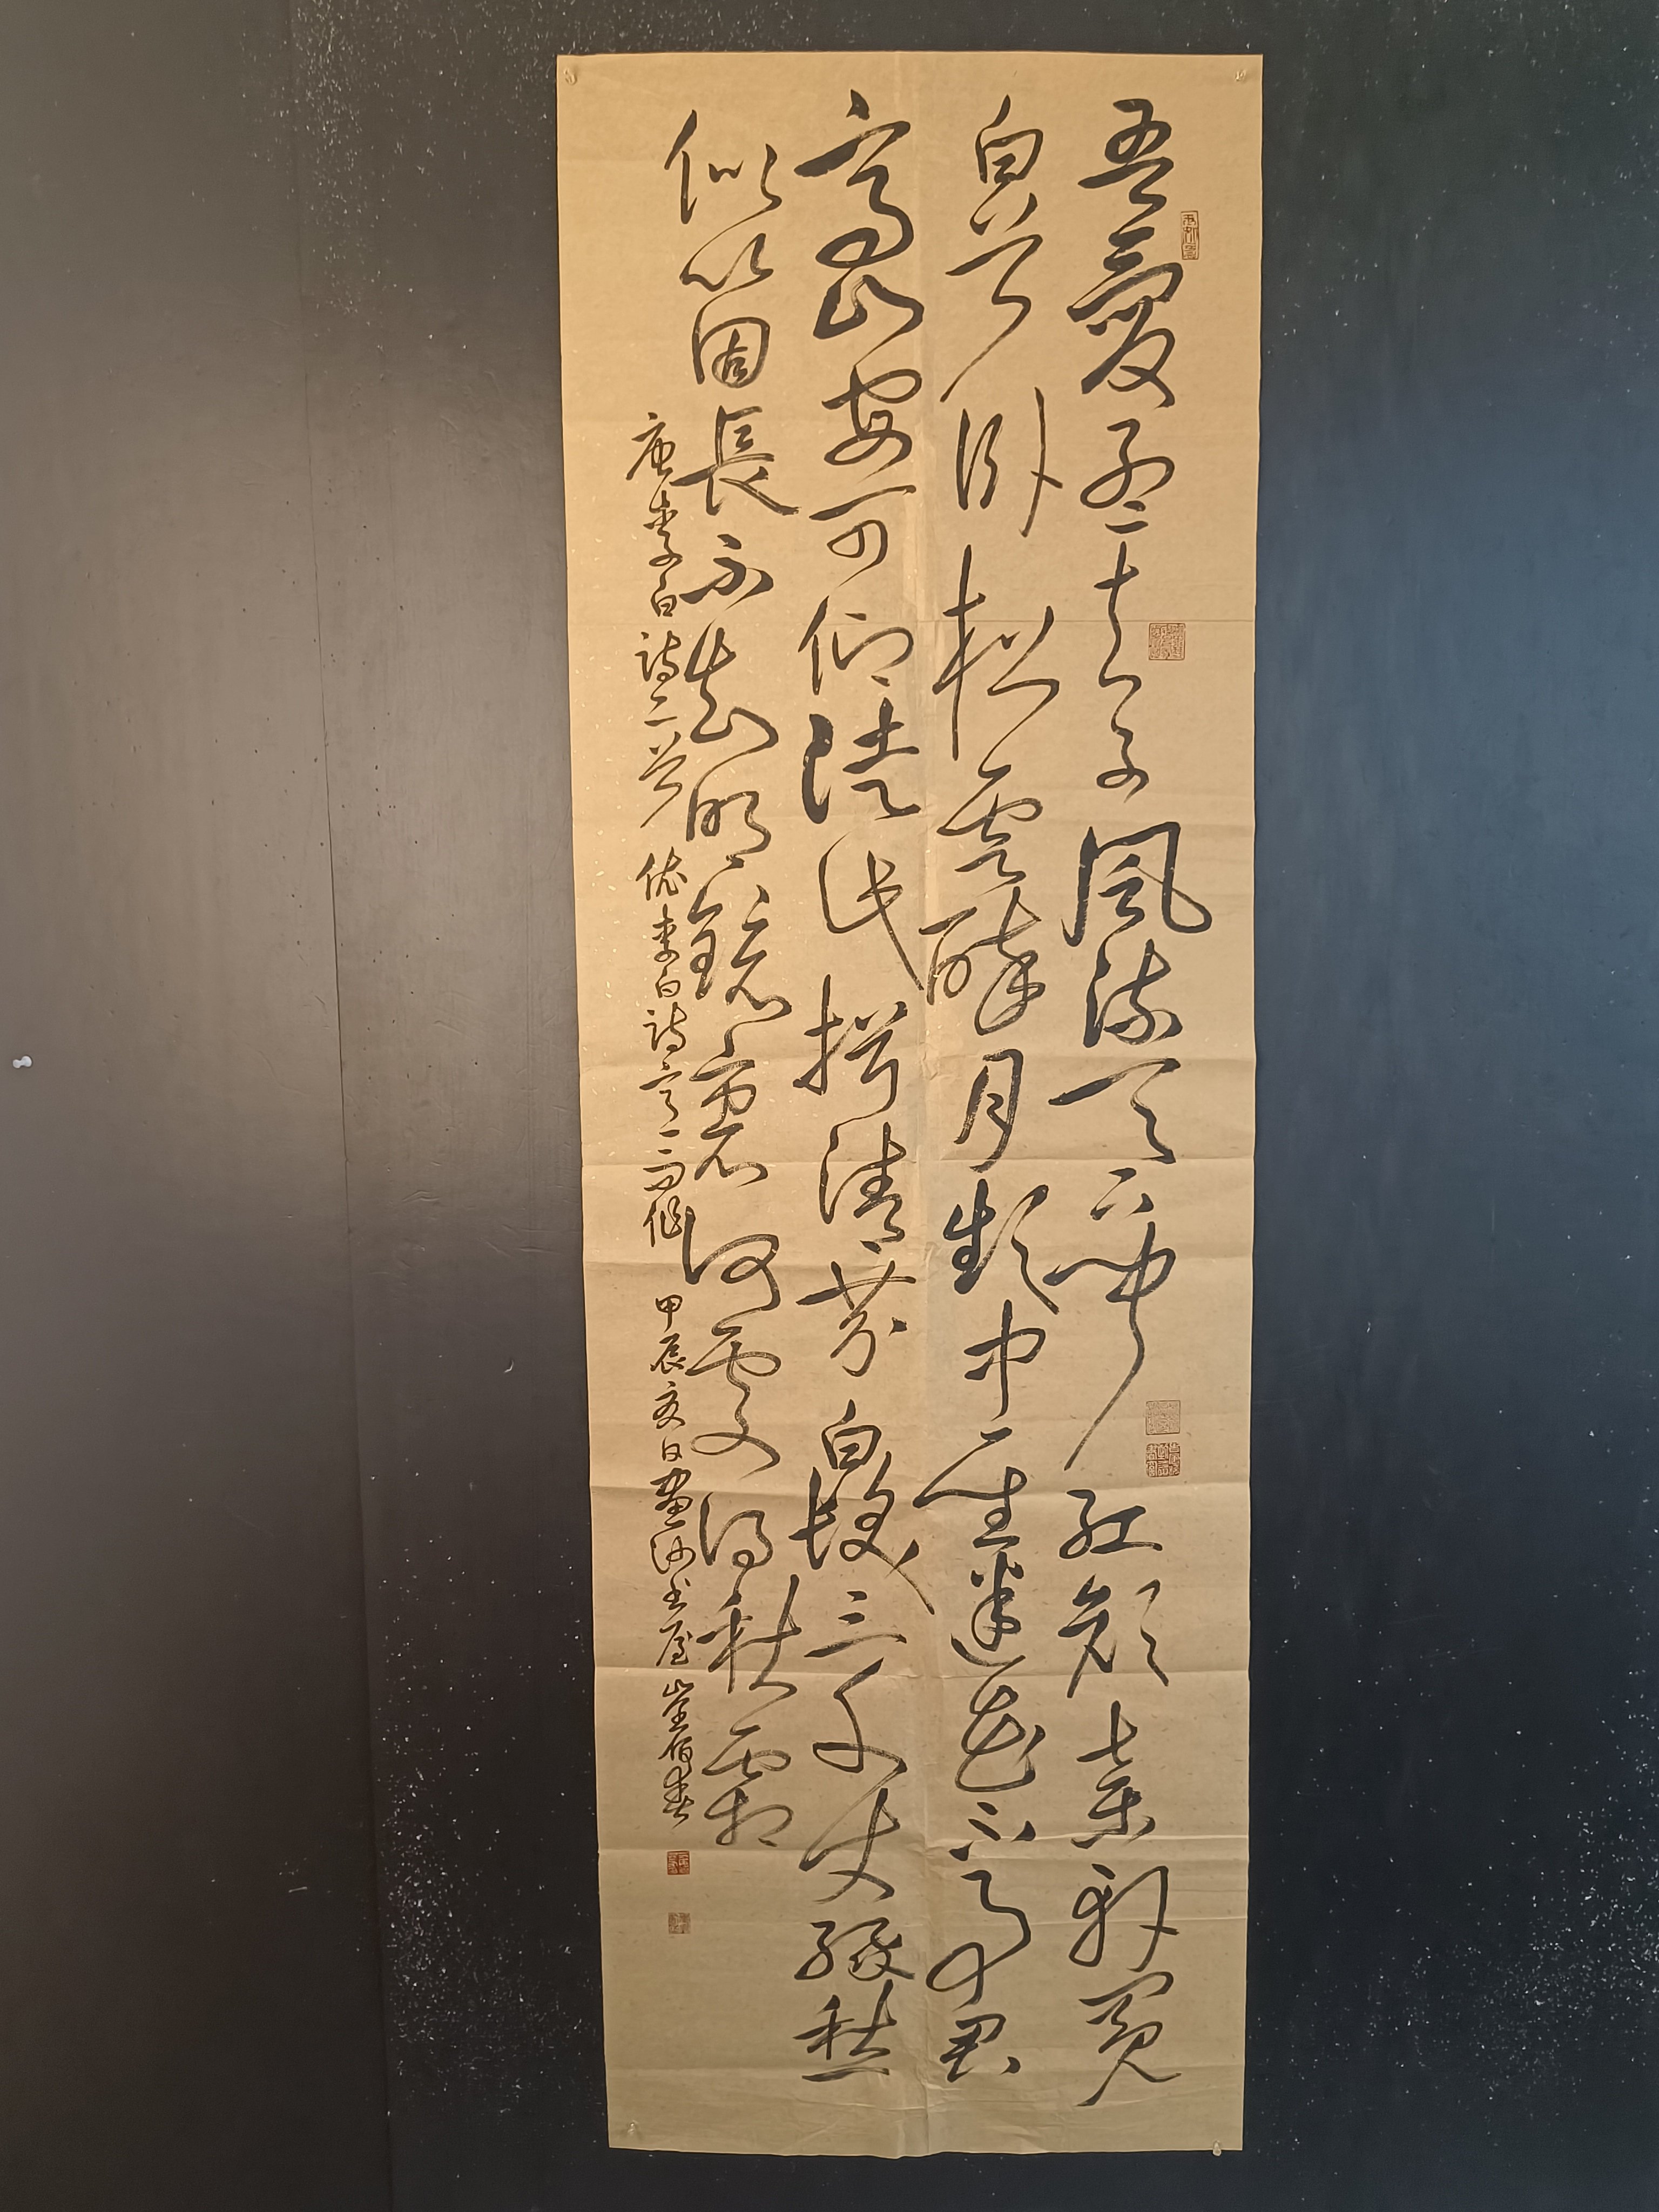 吾愛孟夫子風流天下聞紅顏棄軒冕
白首卧松雲醉月頻中聖迷花不事君
高山安可仰徒此揖清芬白髮三千丈緣愁
似箇長不知明鏡裏何處得秋霜
唐李白詩二首 李白詩 甲辰夏日畫沙書屋崔